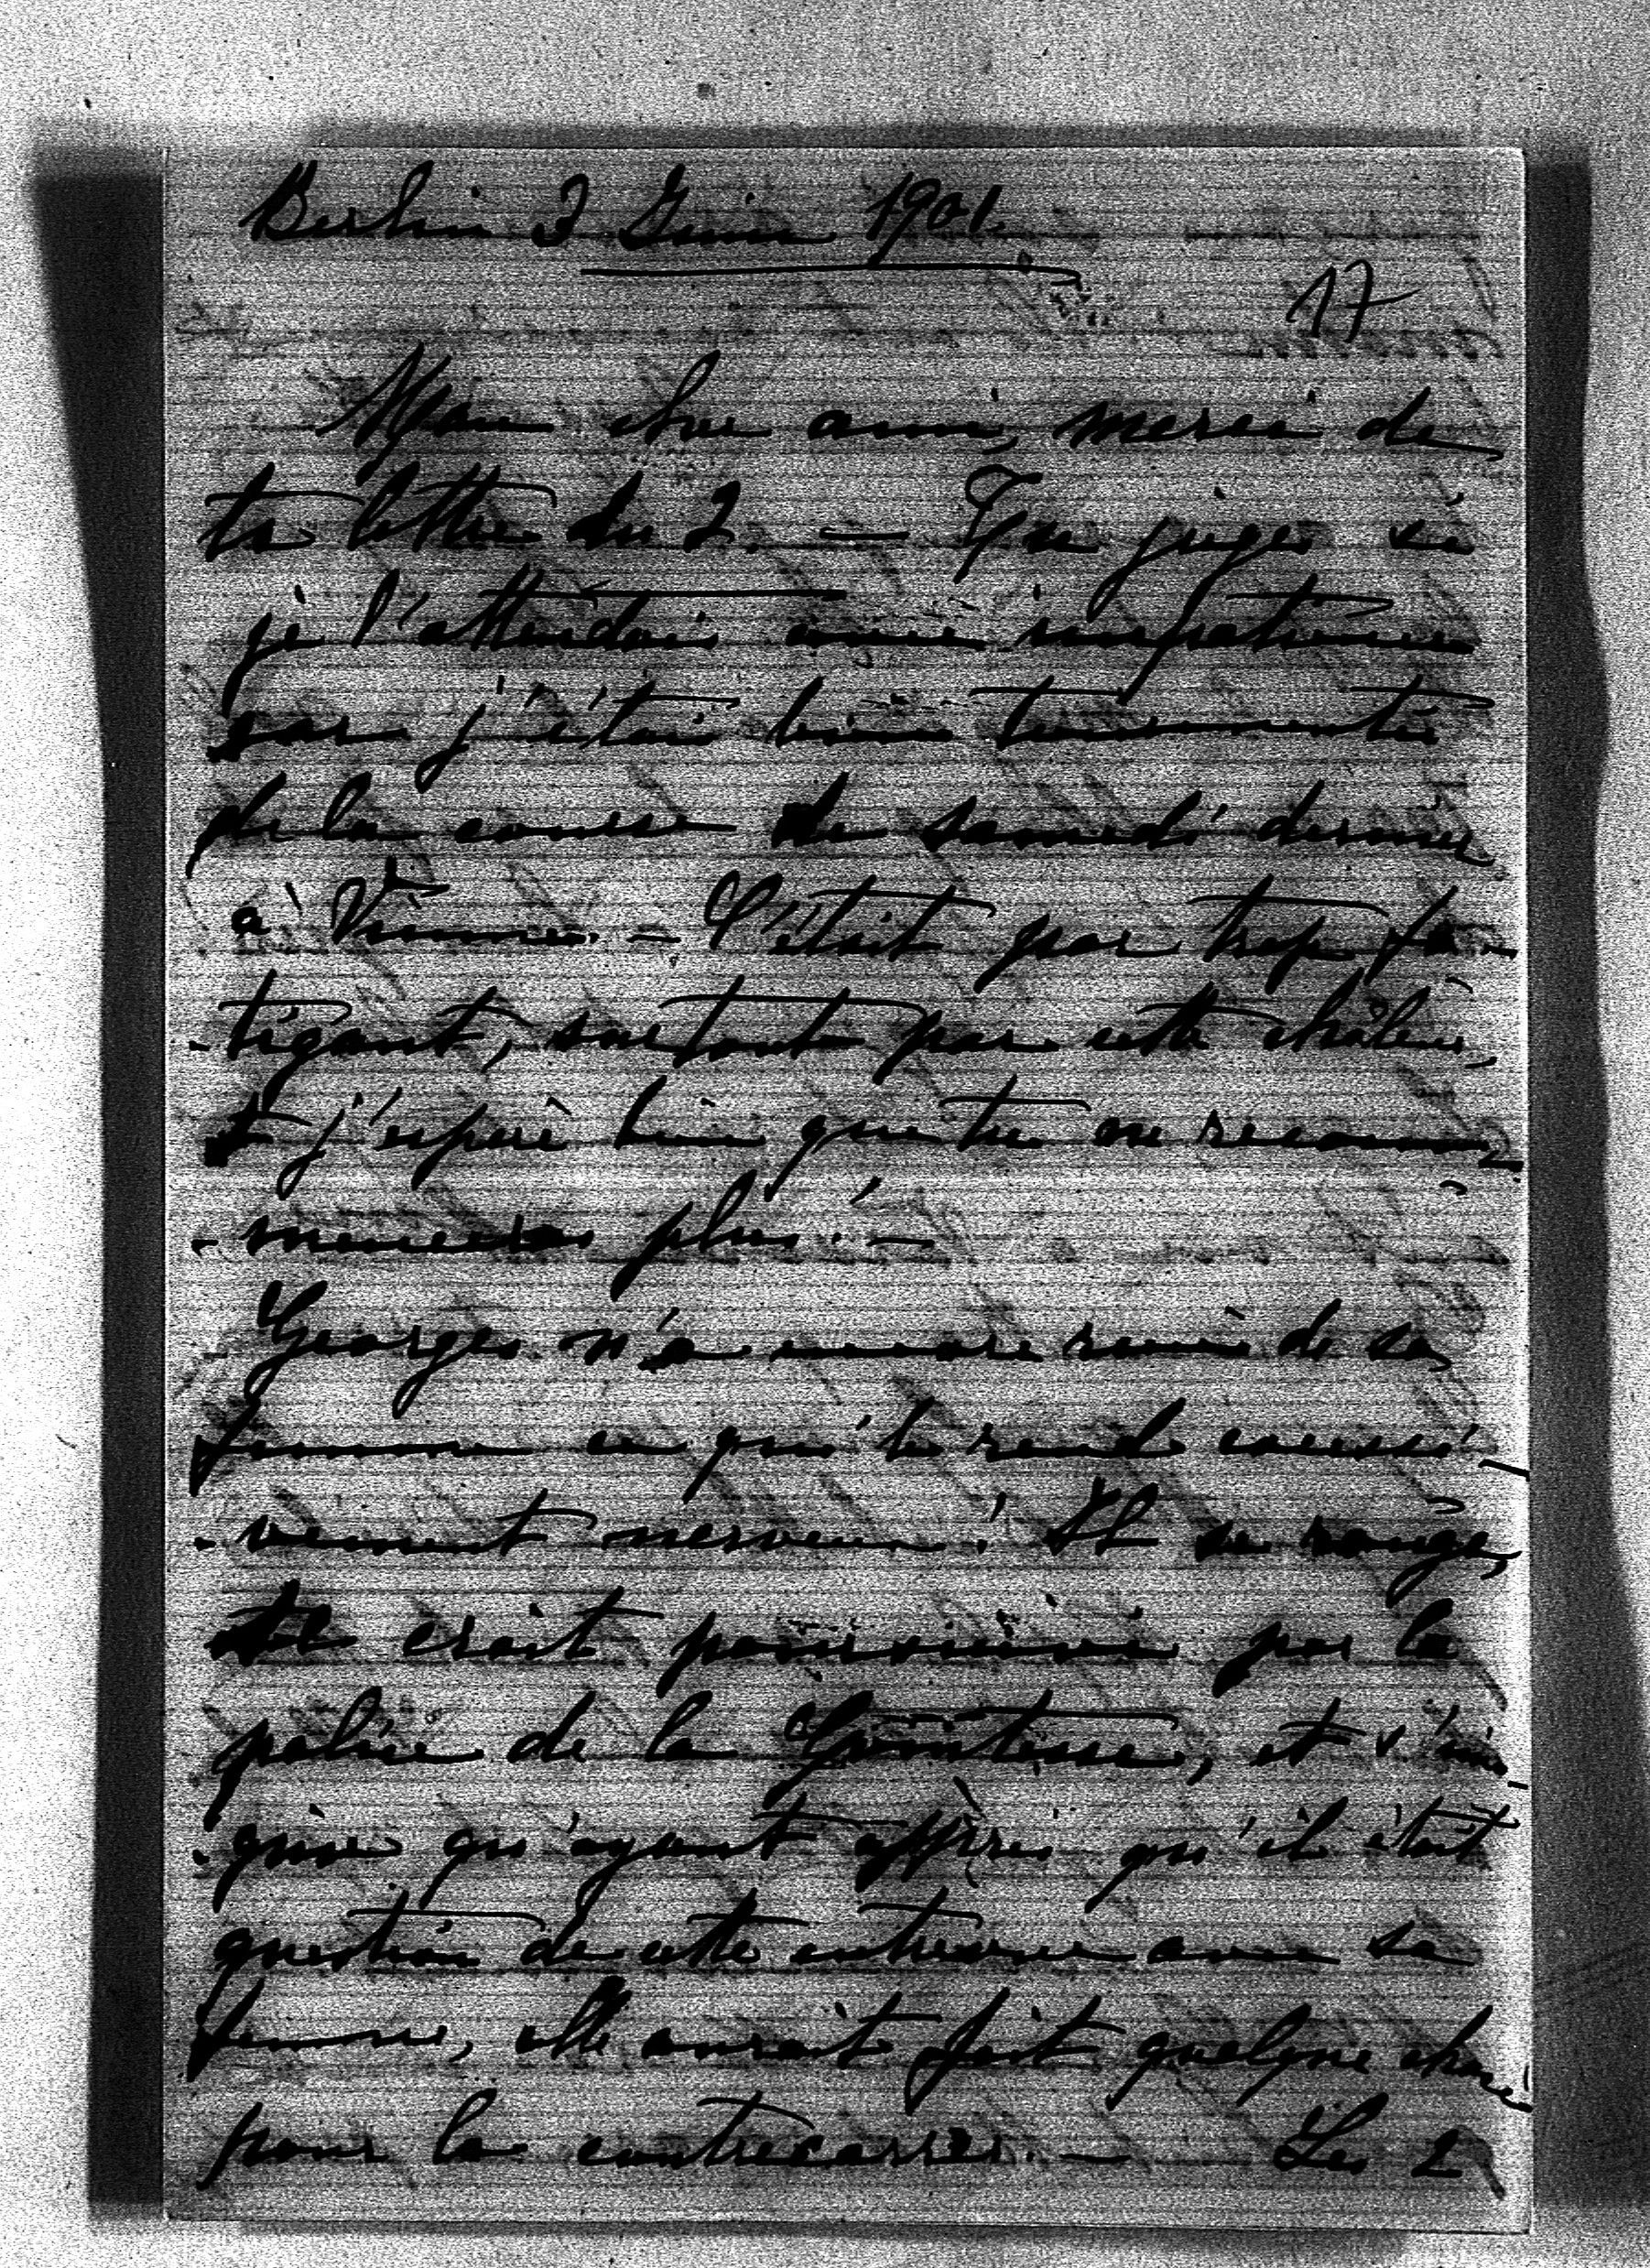 Berlin 3 Juin 1901.
17
Mon cher ami, merci de
ta lettre du 2. — Tu juges si
je l'attendais avec impatience
car j'étais bien tourmentée
de la course de samedi dernier
à Vienne. — C'était par trop fa-
-tigant, surtout par cette chaleur,
et j'espère bien que tu ne recom-
-menceras plus! —
Georges n'a encore rien de sa
femme ce qui le rend excessi-
-vement nerveux! Il se ronge,
se croit poursuivi par la
police de la Comtesse, et s'ima-
-gine qu'ayant appris qu'il était
question de cette entrevue avec sa
femme, elle aurait fait quelque chose
pour la contrecarrer. — Les 2